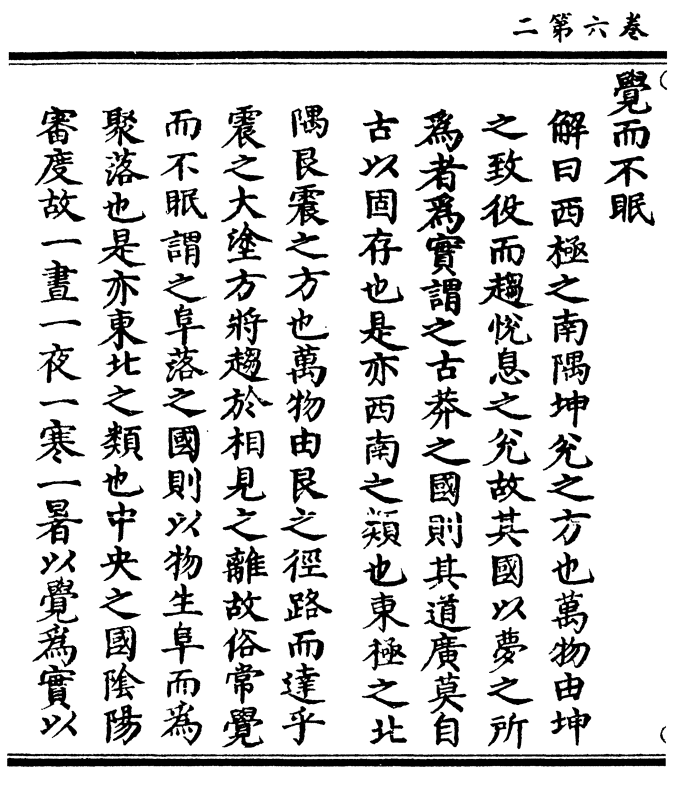 二第六卷
覺而不眠
解曰西極之南隅坤兊之方也萬物由坤
之致役而趨悅息之兊故其國以夢之所
為者為實謂之古莽之國則其道廣莫自
古以固存也是亦西南之類也東極之北
隅艮震之方也萬物由艮之徑路而達乎
震之大塗方將趨於相見之離故俗常覺
而不眠謂之阜落之國則以物生阜而為
聚落也是亦東北之類也中央之國陰陽
審度故一晝一夜一寒一暑以覺為實以